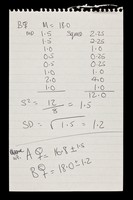 B♀ M = 18.0
MD Square
1.5 2.25
1.5 2.25
1.0 1.0
0.5 0.25
0.5 0.25
1.0 1.0
2.0 4.0
1.0 1.0
12.0
S² = 12/8 = 1.5
SD = √1.5 = 1.2
A♀ = 16.8 ± 1.5
B♀ = 18.0 ± 1.2